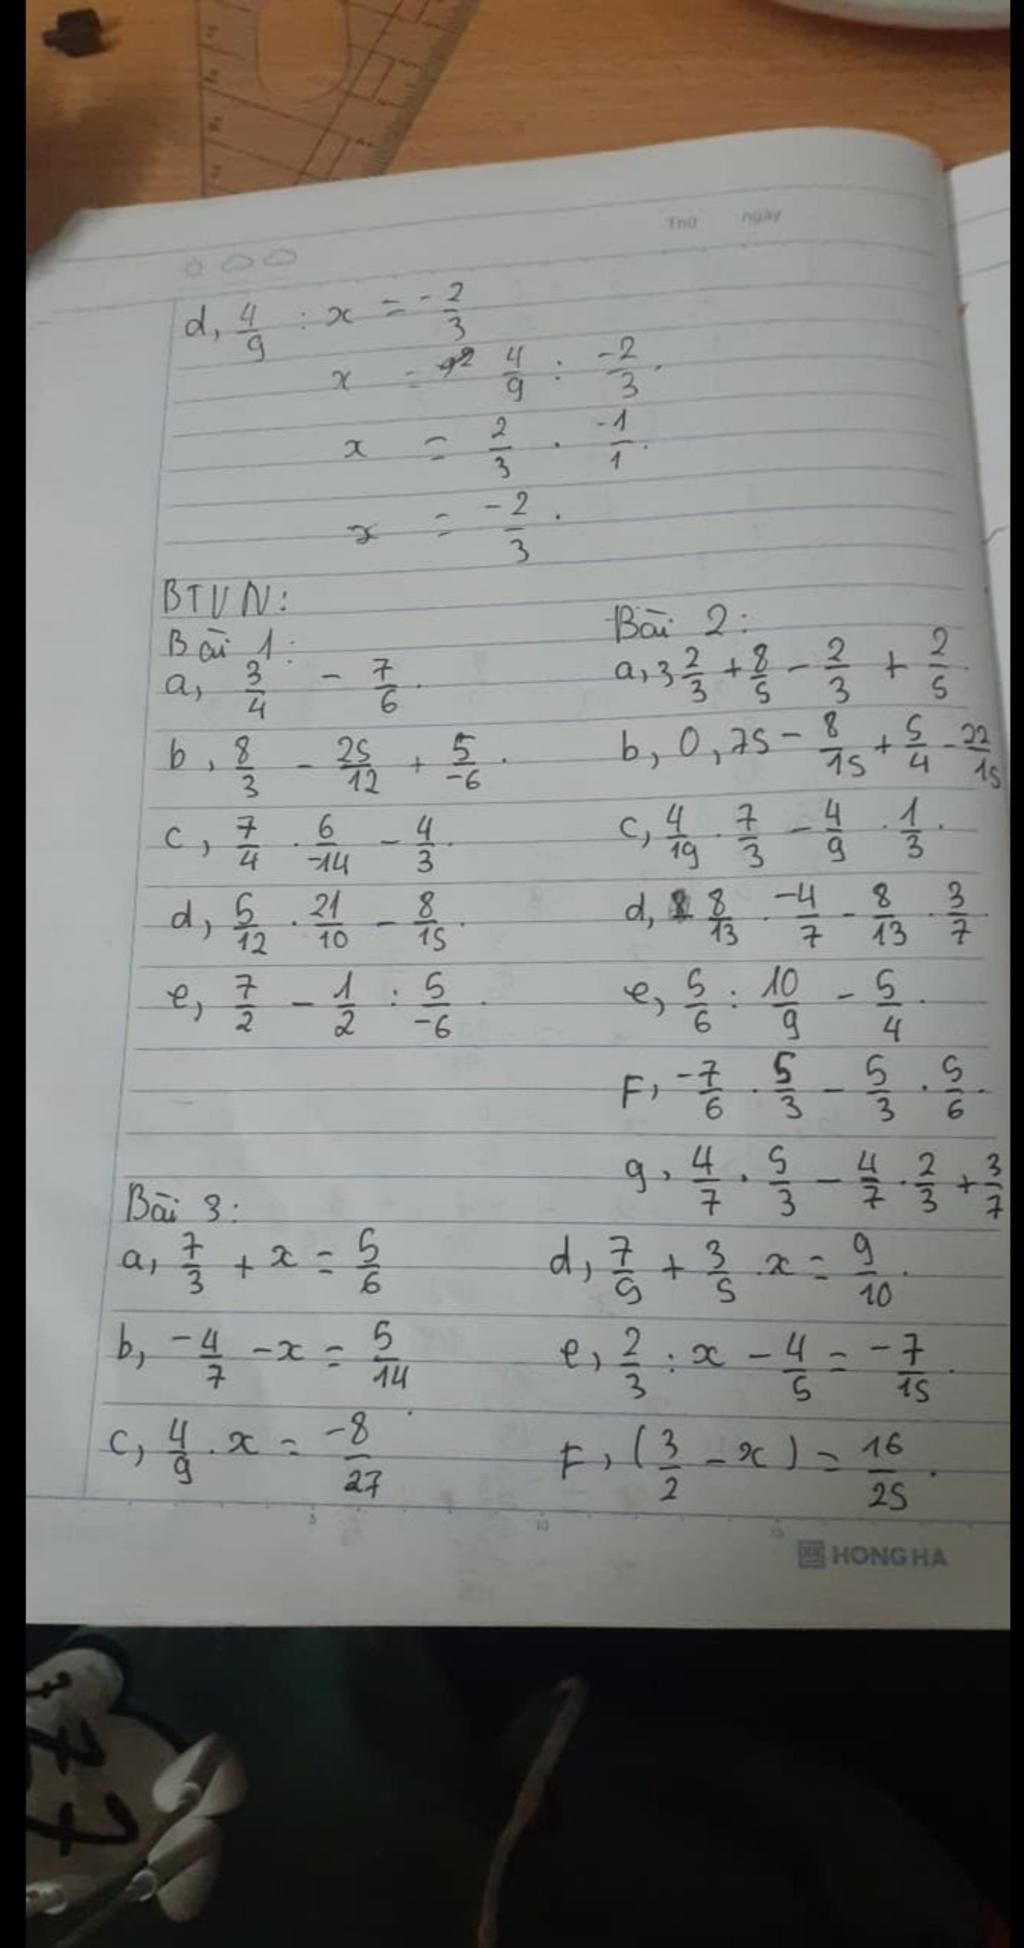 Thứ ngày
d, 4/9 : x = -2/3
x = 4/9 : -2/3.
x = 2/3 . -1/1.
x = -2/3.
BTVN:
Bài 1:
a, 3/4 - 7/6.
b, 8/3 - 25/12 + 5/-6.
c, 7/4 . 6/-14 - 4/3.
d, 5/12 . 21/10 - 8/15.
e, 7/2 - 1/2 : 5/-6.
Bài 2:
a, 3 2/3 + 8/5 - 2/3 + 2/5.
b, 0,75 - 8/15 + 5/4 - 22/15
c, 4/19 . 7/3 - 4/9 . 1/3.
d, 8/13 . -4/7 - 8/13 . 3/7.
e, 5/6 : 10/9 - 5/4.
F, -7/6 . 5/3 - 5/3 . 5/6.
g, 4/7 . 5/3 - 4/7 . 2/3 + 3/7
Bài 3:
a, 7/3 + x = 5/6
b, -4/7 - x = 5/14
c, 4/9 . x = -8/27
d, 7/5 + 3/5 . x = 9/10.
e, 2/3 : x - 4/5 = -7/15.
F, (3/2 - x) = 16/25.
5 10 15
HONG HA